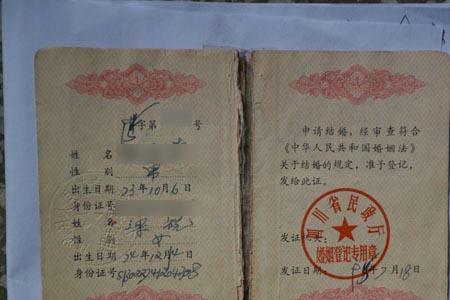 字第 号
姓名
性别 男
出生日期 23年10月6日
身份证号
姓名
性别 女
出生日期 24年12月14日
身份证号
申请结婚，经审查符合
《中华人民共和国婚姻法》
关于结婚的规定，准予登记，
发给此证。
四川省民政厅
婚姻登记专用章
发证机关：
发证日期： 年7月18日